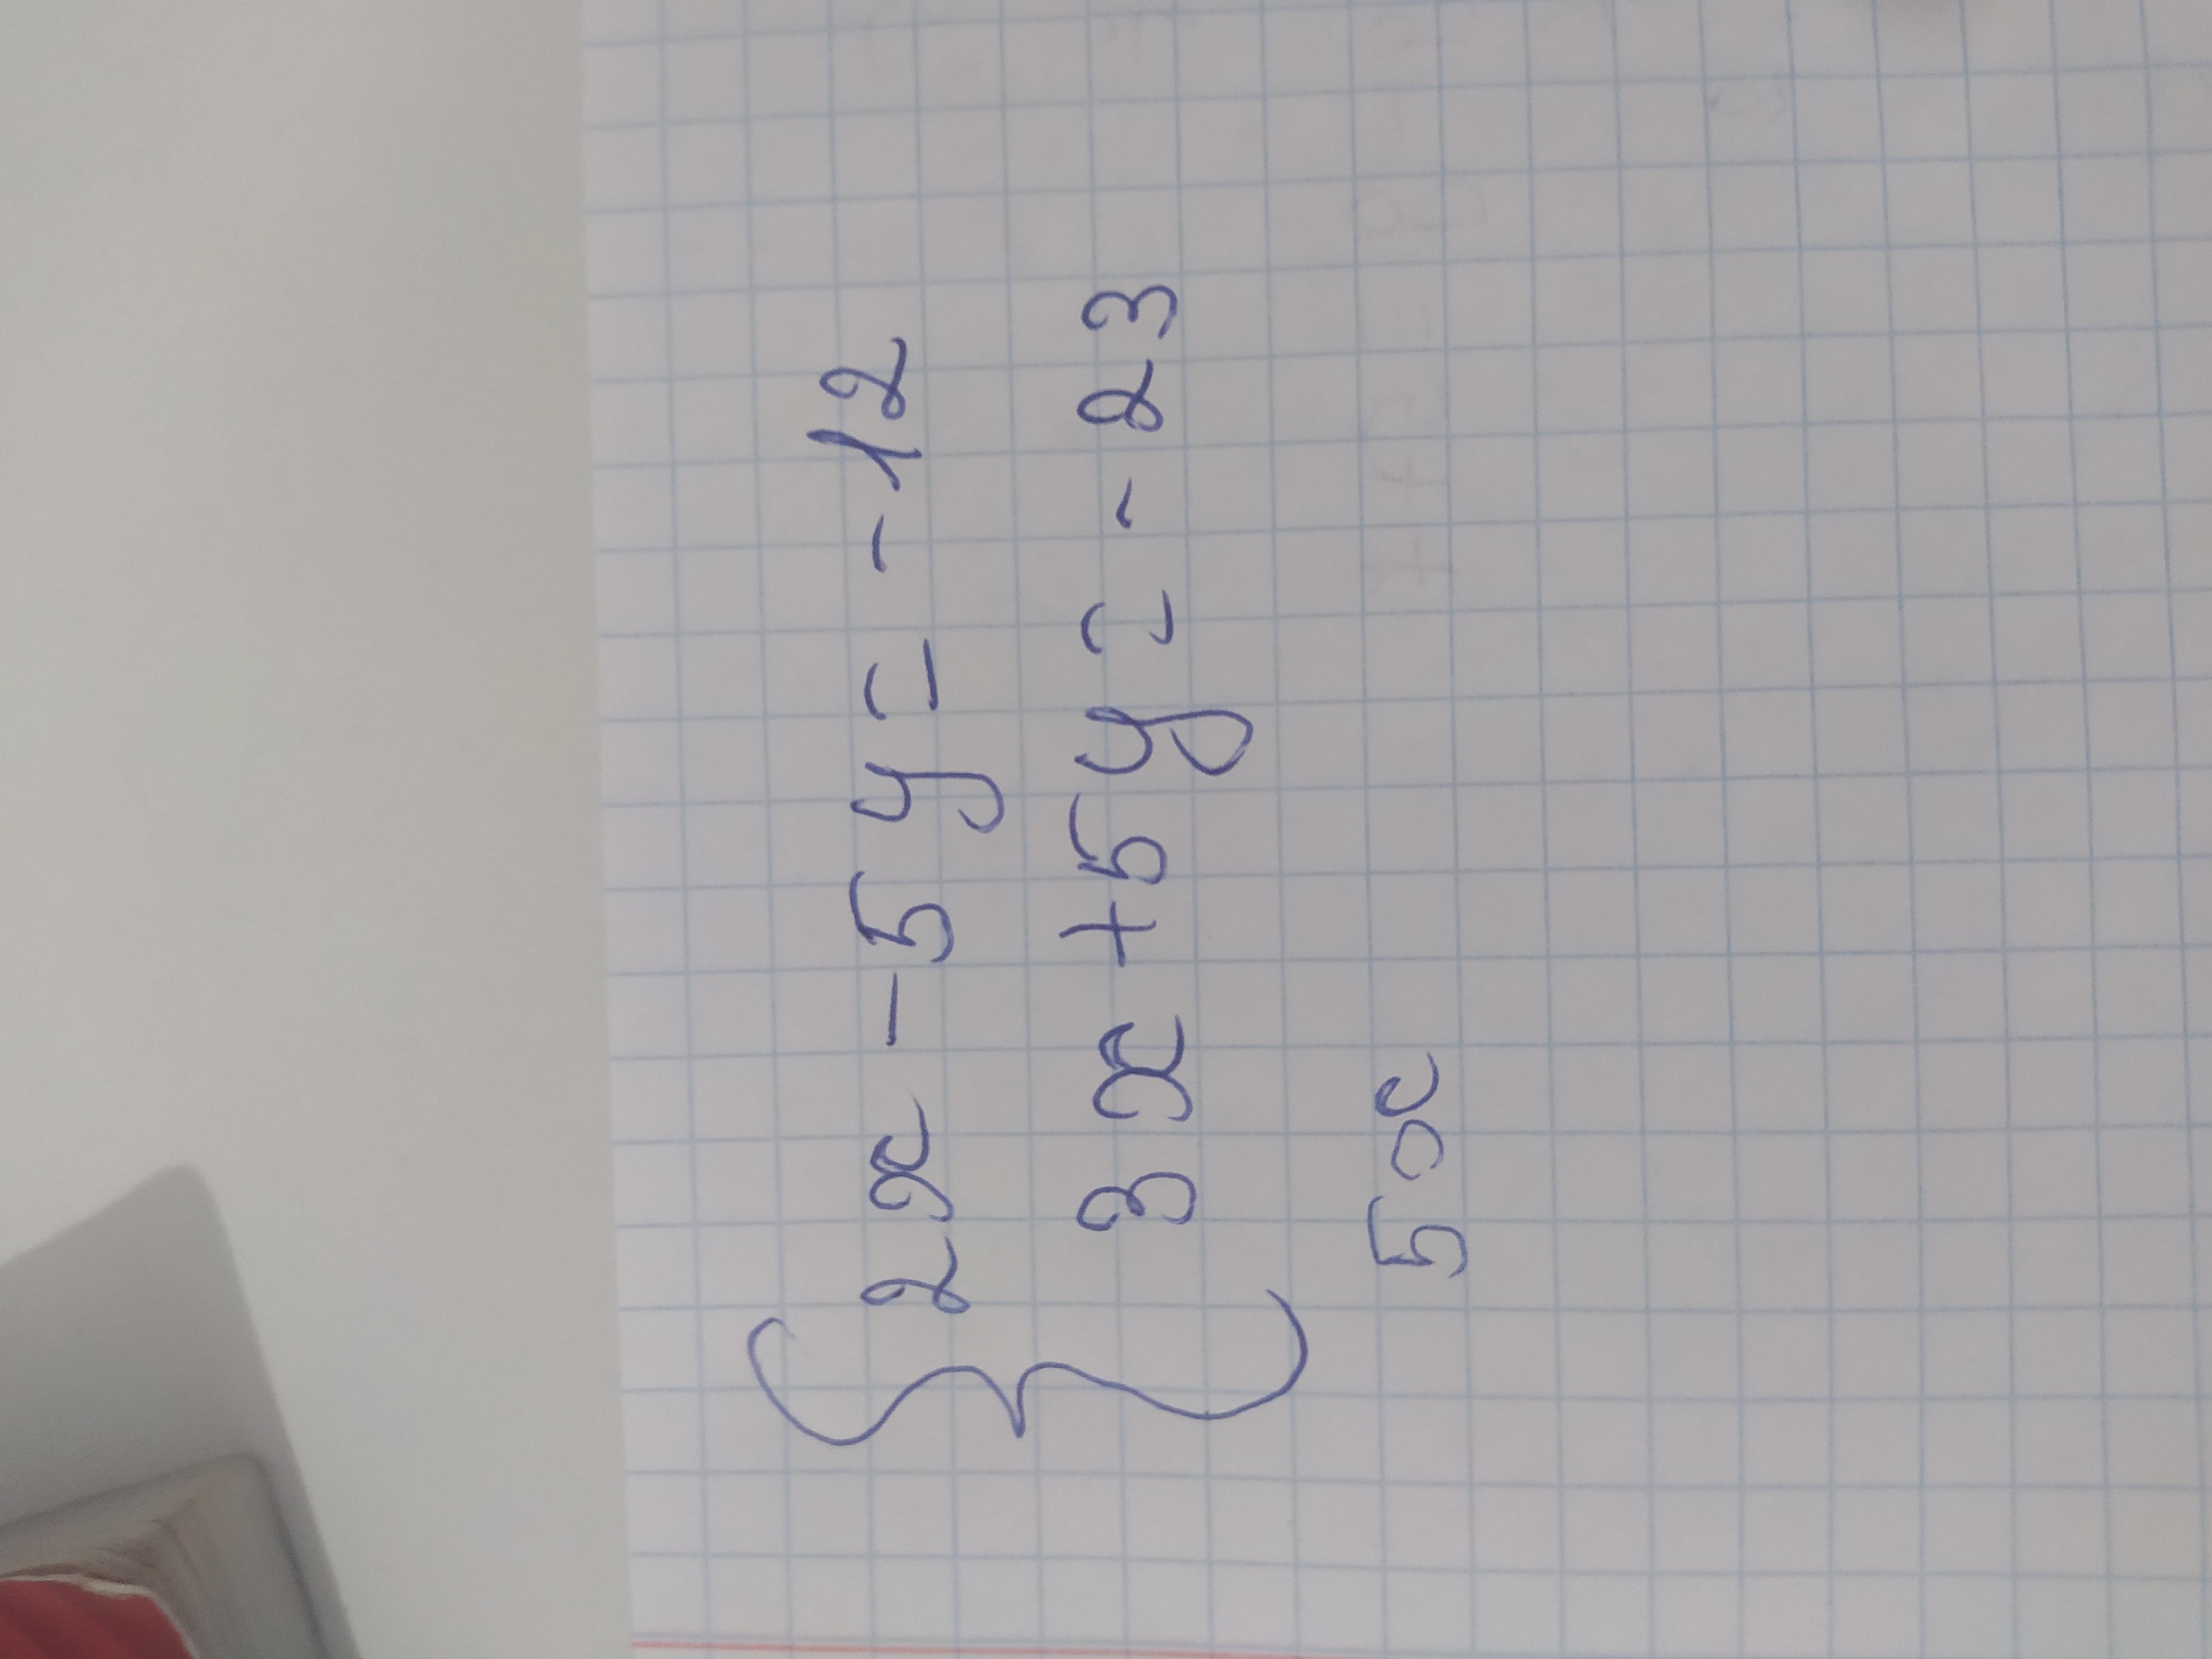 2x - 5y = - 12
3x + 5y = - 23
5x